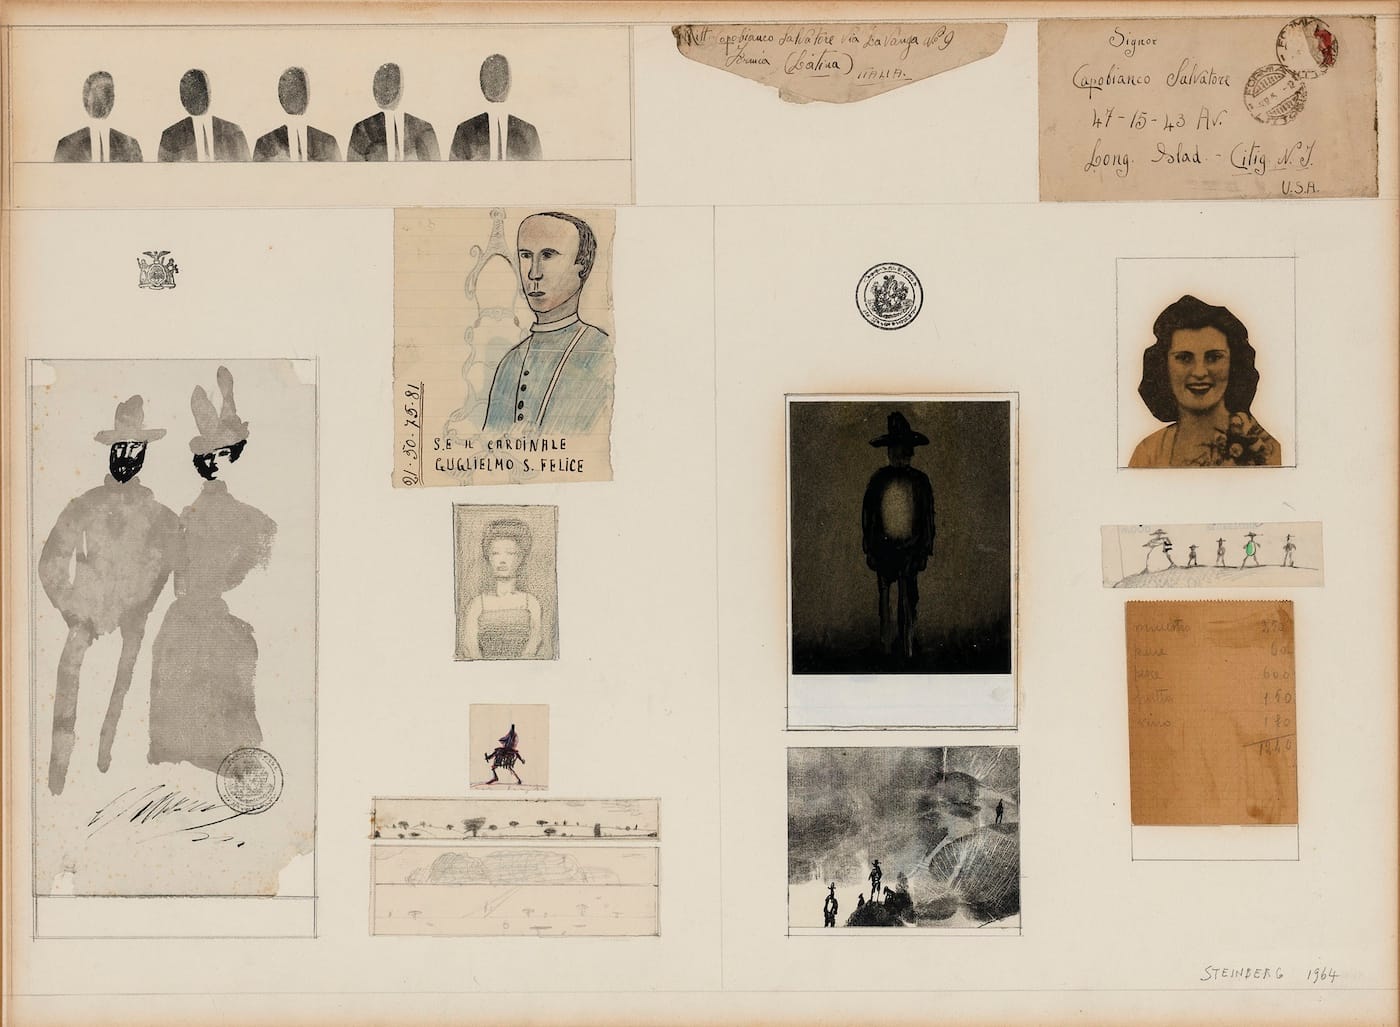 Mitt Capobianco Salvatore Via Lavanga No 9
Formia (Latina)
ITALIA.
Signor
Capobianco Salvatore
47-15-43 Av.
Long. Islad. - Citig. N.J.
U.S.A.
21-50-75-81
S.E IL CARDINALE
GUGLIELMO S. FELICE
minestra
pane 60
pesce 600
vino
1240
STEINBERG 1964